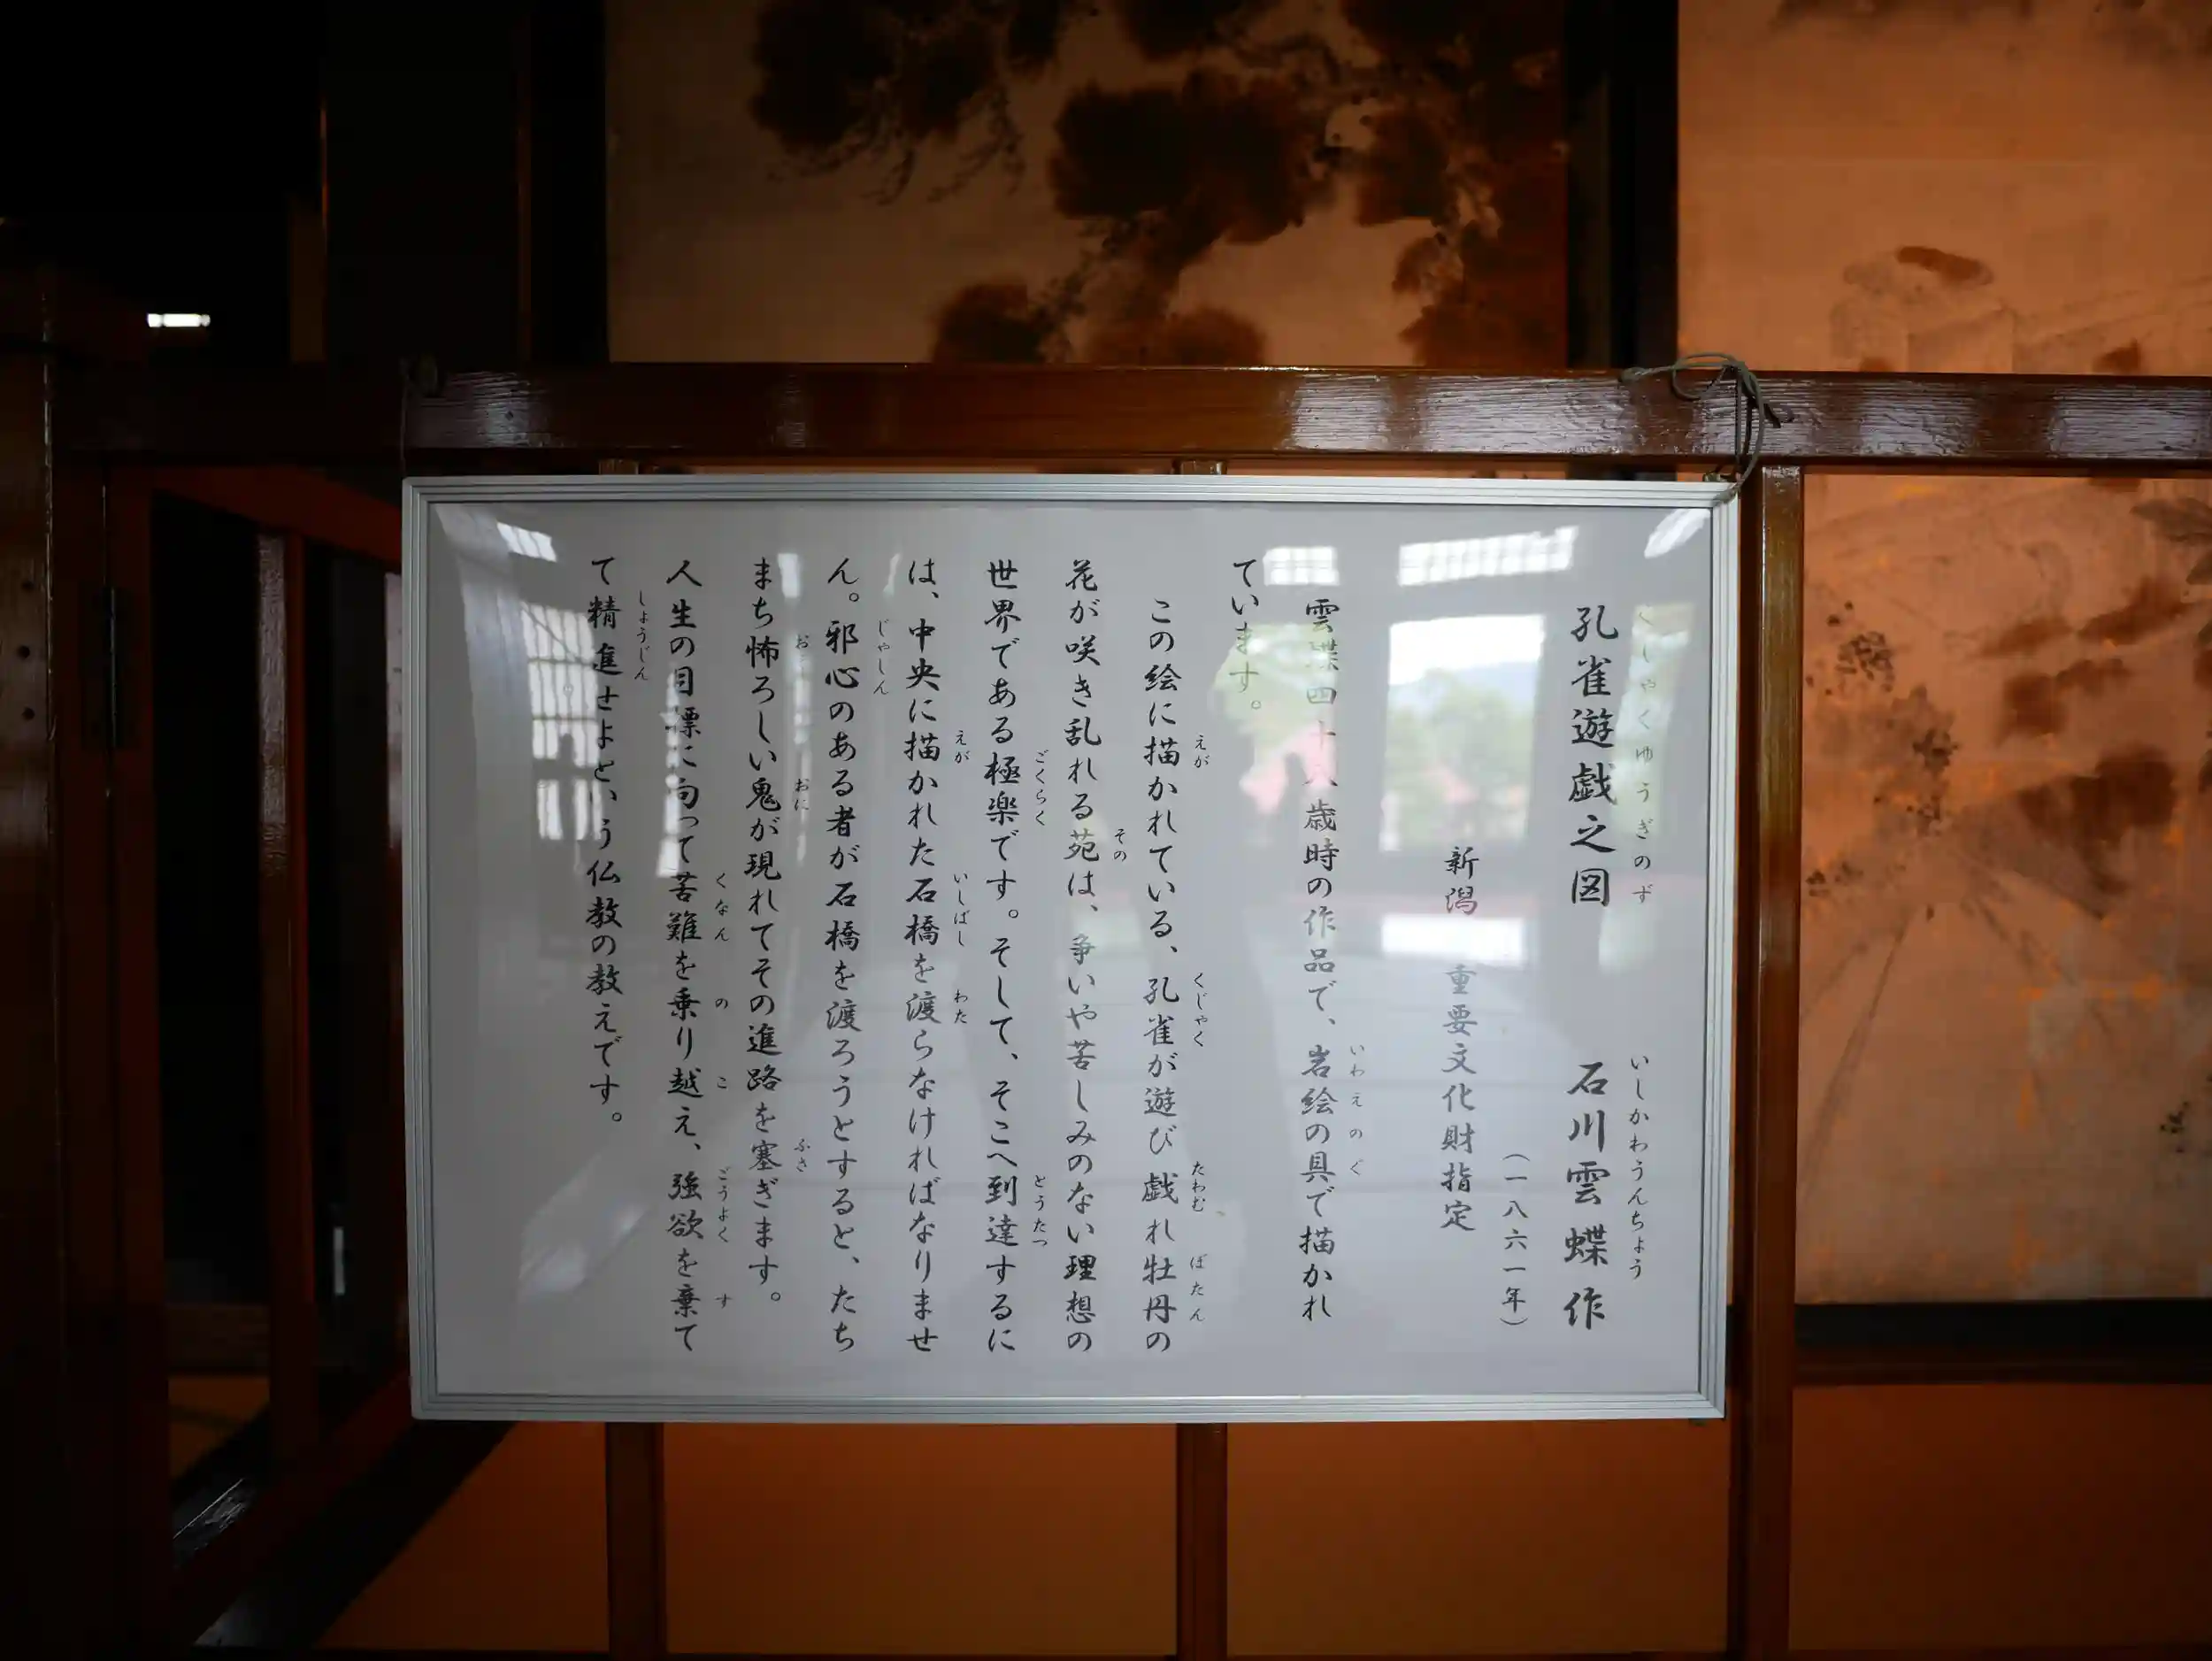 孔雀遊戯之図 石川雲蝶作
くじゃくゆうぎのず いしかわうんちょう
(一八六一年)
新潟 重要文化財指定
雲蝶四十八歳時の作品で、岩絵の具で描かれ
いわえのぐ
ています。
この絵に描かれている、孔雀が遊び戯れ牡丹の
えが くじゃく たわむ ぼたん
花が咲き乱れる苑は、争いや苦しみのない理想の
その
世界である極楽です。そして、そこへ到達するに
ごくらく とうたつ
は、中央に描かれた石橋を渡らなければなりませ
えが いしばし わた
ん。邪心のある者が石橋を渡ろうとすると、たち
じゃしん
まち怖ろしい鬼が現れてその進路を塞ぎます。
おそ おに ふさ
人生の目標に向って苦難を乗り越え、強欲を棄て
くなん の こ ごうよく す
て精進せよという仏教の教えです。
しょうじん